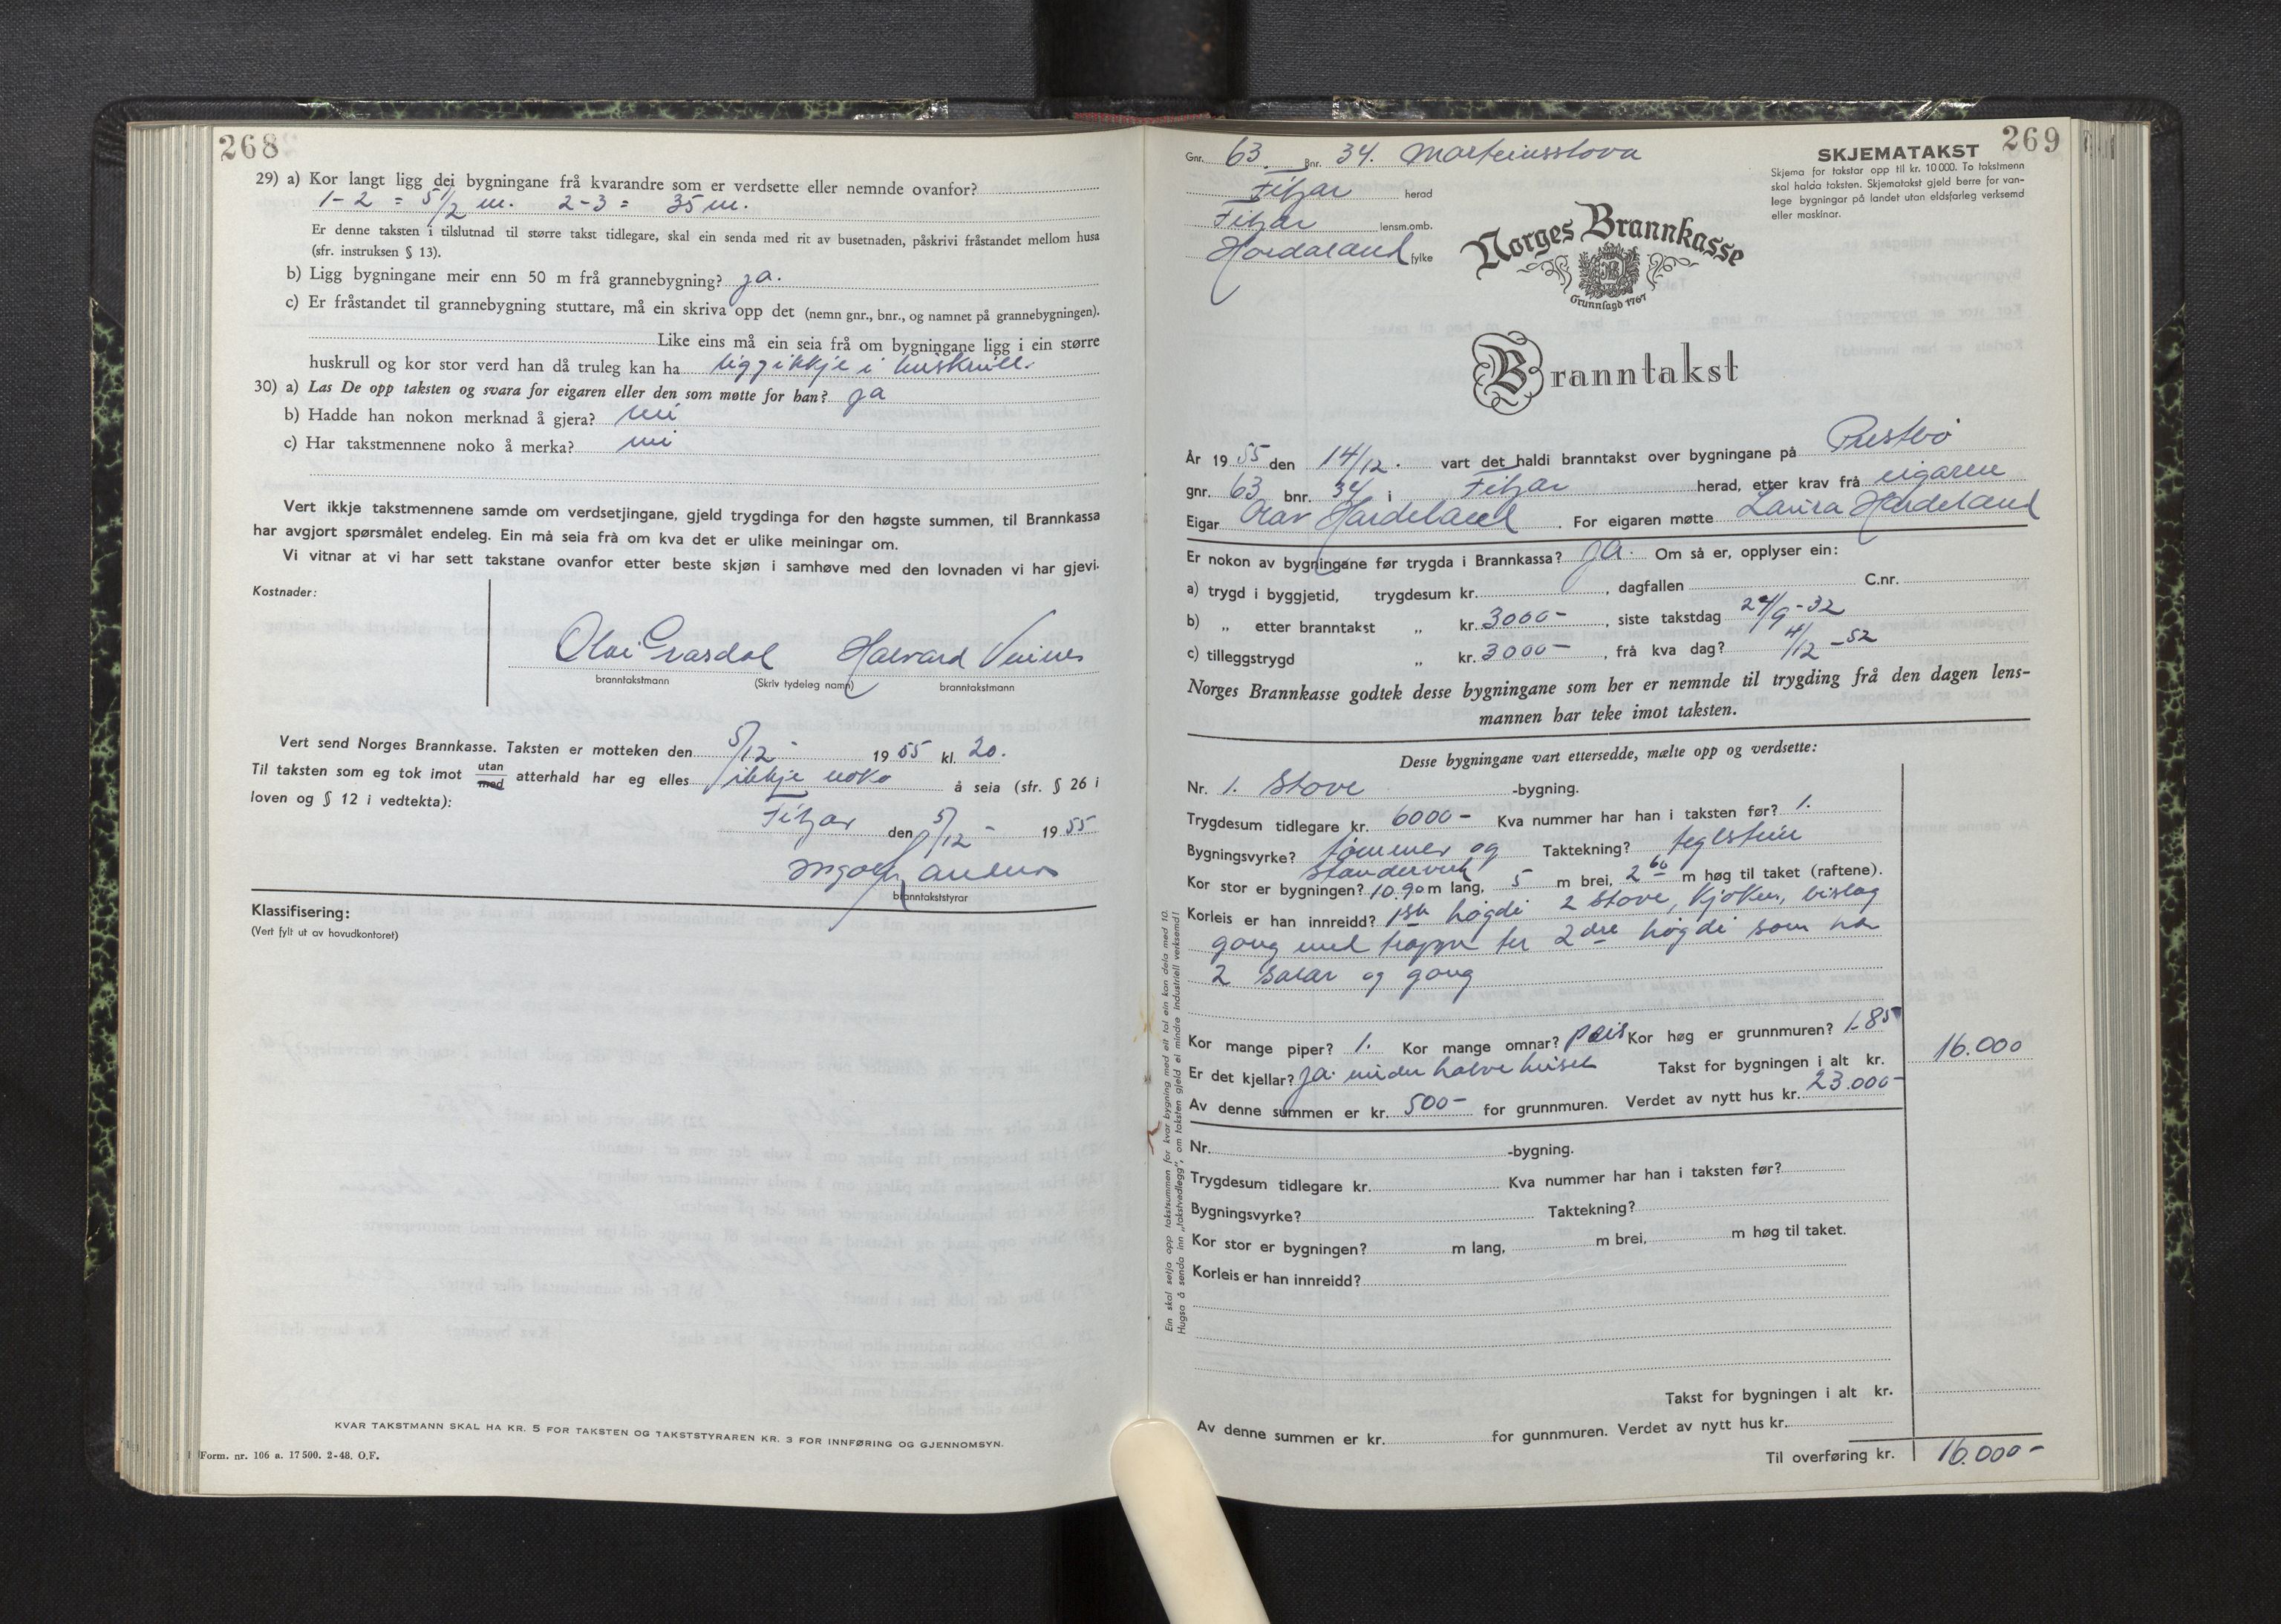 268
29) a) Kor langt ligg dei bygningane frå kvarandre som er verdsette eller nemnde ovanfor?
1-2 = 5 1/2 m. 2-3 = 35 m.
Er denne taksten i tilslutnad til større takst tidlegare, skal ein senda med rit av busetnaden, påskrivi fråstandet mellom husa
(sfr. instruksen § 13).
b) Ligg bygningane meir enn 50 m frå grannebygning? ja.
c) Er fråstandet til grannebygning stuttare, må ein skriva opp det (nemn gnr., bnr., og namnet på grannebygningen).
Like eins må ein seia frå om bygningane ligg i ein større
huskrull og kor stor verd han då truleg kan ha ligg ikkje i huskrull.
30) a) Las De opp taksten og svara for eigaren eller den som møtte for han? ja
b) Hadde han nokon merknad å gjera? nei
c) Har takstmennene noko å merka? nei
Vert ikkje takstmennene samde om verdsetjingane, gjeld trygdinga for den høgste summen, til Brannkassa
har avgjort spørsmålet endeleg. Ein må seia frå om kva det er ulike meiningar om.
Vi vitnar at vi har sett takstane ovanfor etter beste skjøn i samhøve med den lovnaden vi har gjevi.
Kostnader:
Olai Grasdal Halvard
branntakstmann (Skriv tydeleg namn) branntakstmann
Vert send Norges Brannkasse. Taksten er motteken den 5/12 - 1955 kl. 20.
Til taksten som eg tok imot utan med atterhald har eg elles ikkje noko å seia (sfr. § 26 i
loven og § 12 i vedtekta):
Fitjar den 5/12 - 1955
branntakststyrar
Klassifisering:
(Vert fylt ut av hovudkontoret)
KVAR TAKSTMANN SKAL HA KR. 5 FOR TAKSTEN OG TAKSTSTYRAREN KR. 3 FOR INNFØRING OG GJENNOMSYN.
Form. nr. 106 a. 17500. 2-48. O.F.
269
Gnr. 63. Bnr. 34. Marteinsstova
Fitjar herad
Fitjar lensm.omb.
Hordaland fylke
SKJEMATAKST
Skjema for takstar opp til kr. 10000. To takstmenn
skal halda taksten. Skjematakst gjeld berre for van-
lege bygningar på landet utan eldsfarleg verksemd
eller maskinar.
Norges Brannkasse
Grunnlagd 1767
Branntakst
År 1955 den 14/12. vart det haldi branntakst over bygningane på Prestbø
gnr. 63 bnr. 34 i Fitjar herad, etter krav frå eigaren
Eigar Olav Hardeland. For eigaren møtte Laura Hardeland
Er nokon av bygningane før trygda i Brannkassa? ja. Om så er, opplyser ein:
a) trygd i byggjetid, trygdesum kr. , dagfallen C.nr.
b) „ etter branntakst „ kr. 3000- , siste takstdag 24/9-32
c) tilleggstrygd „ kr. 3000- , frå kva dag? 4/12-52
Norges Brannkasse godtek desse bygningane som her er nemnde til trygding frå den dagen lens-
mannen har teke imot taksten.
Desse bygningane vart ettersedde, mælte opp og verdsette:
Nr. 1. Stove -bygning.
Trygdesum tidlegare kr. 6000- Kva nummer har han i taksten før? 1.
Bygningsvyrke? tømmer og Taktekning? teglstein
standerverk
Kor stor er bygningen? 10.90 m lang, 5 m brei, 2 60 m høg til taket (raftene).
Korleis er han innreidd? 1ste høgdi 2 stove, kjøken, bislag
gang med trapper til 2dre høgdi som ha
2 salar og gang
Kor mange piper? 1. Kor mange omnar? peis Kor høg er grunnmuren? 1-85
Er det kjellar? ja. under halve huset Takst for bygningen i alt kr. 16.000
Av denne summen er kr. 500- for grunnmuren. Verdet av nytt hus kr. 23.000-
Nr. -bygning.
Trygdesum tidlegare kr. Kva nummer har han i taksten før?
Bygningsvyrke? Taktekning?
Kor stor er bygningen? m lang, m brei, m høg til taket.
Korleis er han innreidd?
Takst for bygningen i alt kr.
Av denne summen er kr. for gunnmuren. Verdet av nytt hus kr.
Til overføring kr. 16.000-
Ein skal setja opp takstsummen for kvar bygning med eit tal ein kan dela med 10.
Hugsa å senda inn „takstvedlegg", om taksten gjeld ei mindre industriell verksemd!